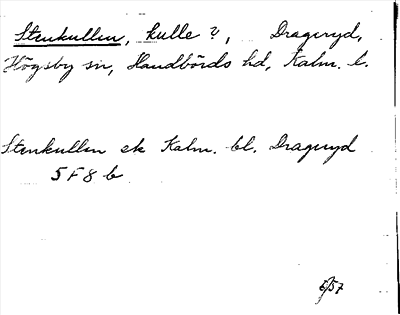 Stenkullen, kulle?, Drageryd,
Högsby sn, Handbörds hd, Kalm. l.
Stenkullen ek Kalm. bl. Drageryd
5 F 8 b
5/57